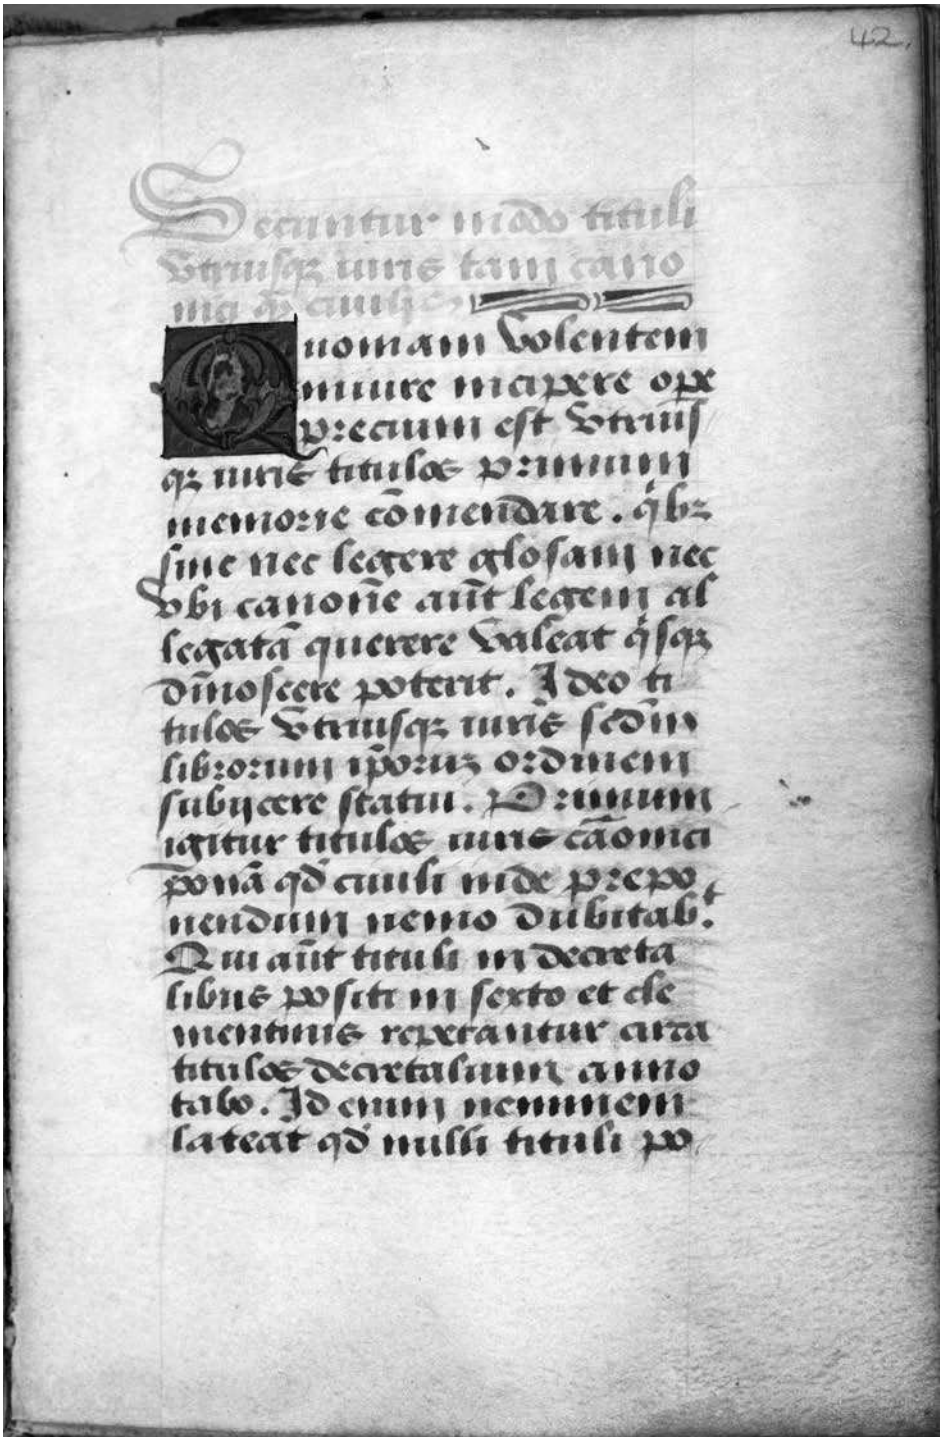 42.
Secuntur modo tituli
vtriusqꝫ iuris tam cano
nici qᷓ ciuilis
Quoniam volentem
in iure incipere ope
precium est vtrius
qꝫ iuris titulos primum
memorie cōmendare. qͥbꝫ
sine nec legere glosam nec
vbi canonē aūt legem al
legatā querere valeat qͥsqꝫ
dīnoscere poterit. Ideo ti
tulos vtriusqꝫ iuris scdm̄
librorum ip̄oruꝫ ordinem
subijcere statui. Primum
igitur titulos iuris cāonici
ponā qd̄ ciuili inde prepo
nendum nemo dubitabᵗ.
Qui aūt tituli in decreta
libus positi in sexto et cle
mentinis reperantur circa
titulos decretalium anno
tabo. Id enim neminem
lateat qd̄ nulli tituli po